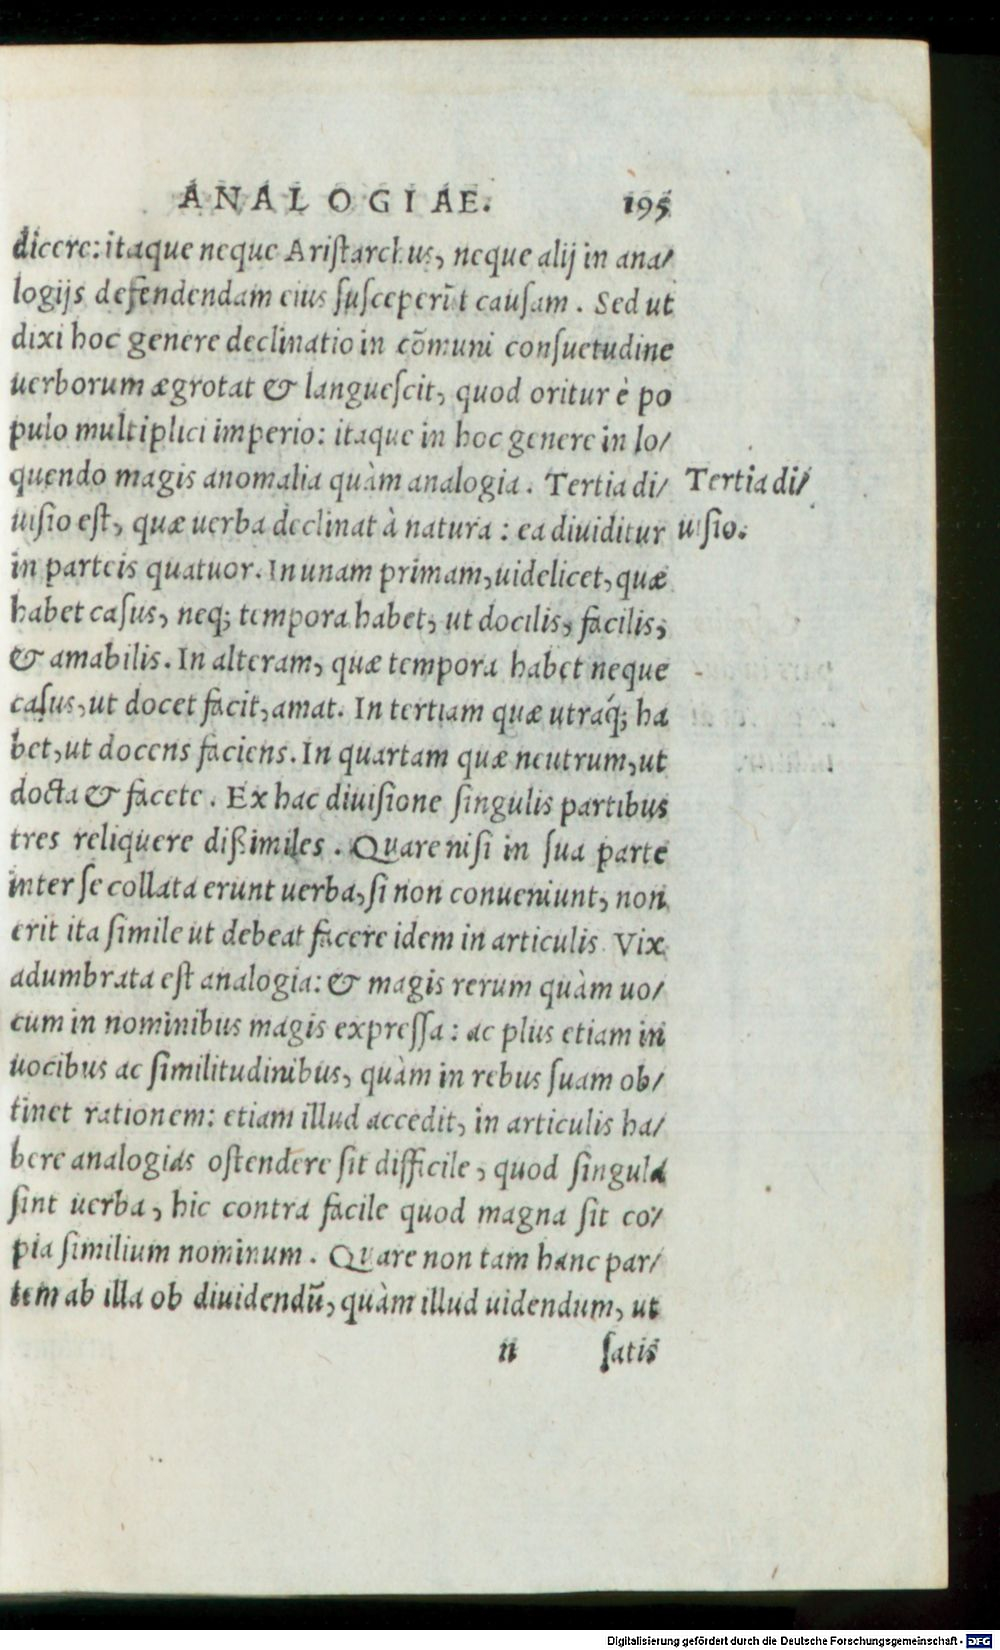 ANALOGIAE. 195
dicere: itaque neque Aristarchus, neque alij in ana/
logijs defendendam eius susceperūt causam. Sed ut
dixi hoc genere declinatio in cōmuni consuetudine
uerborum ægrotat & languescit, quod oritur è po
pulo multiplici imperio: itaque in hoc genere in lo/
quendo magis anomalia quàm analogia. Tertia di/
uisio est, quæ uerba declinat à natura: ea diuiditur
in parteis quatuor. In unam primam, uidelicet, quæ
habet casus, neq; tempora habet, ut docilis, facilis,
& amabilis. In alteram, quæ tempora habet neque
casus, ut docet facit, amat. In tertiam quæ utraq́; ha
bet, ut docens faciens. In quartam quæ neutrum, ut
docta & facete. Ex hac diuisione singulis partibus
tres reliquere dißimiles. Quare nisi in sua parte
inter se collata erunt uerba, si non conueniunt, non
erit ita simile ut debeat facere idem in articulis. Vix
adumbrata est analogia: & magis rerum quàm uo/
cum in nominibus magis expressa: ac plus etiam in
uocibus ac similitudinibus, quàm in rebus suam ob/
tinet rationem: etiam illud accedit, in articulis ha/
bere analogias ostendere sit difficile, quod singula
sint uerba, hic contra facile quod magna sit co/
pia similium nominum. Quare non tam hanc par/
tem ab illa ob diuidendū, quàm illud uidendum, ut
n satis
Tertia di/
uisio.
Digitalisierung gefördert durch die Deutsche Forschungsgemeinschaft - DFG